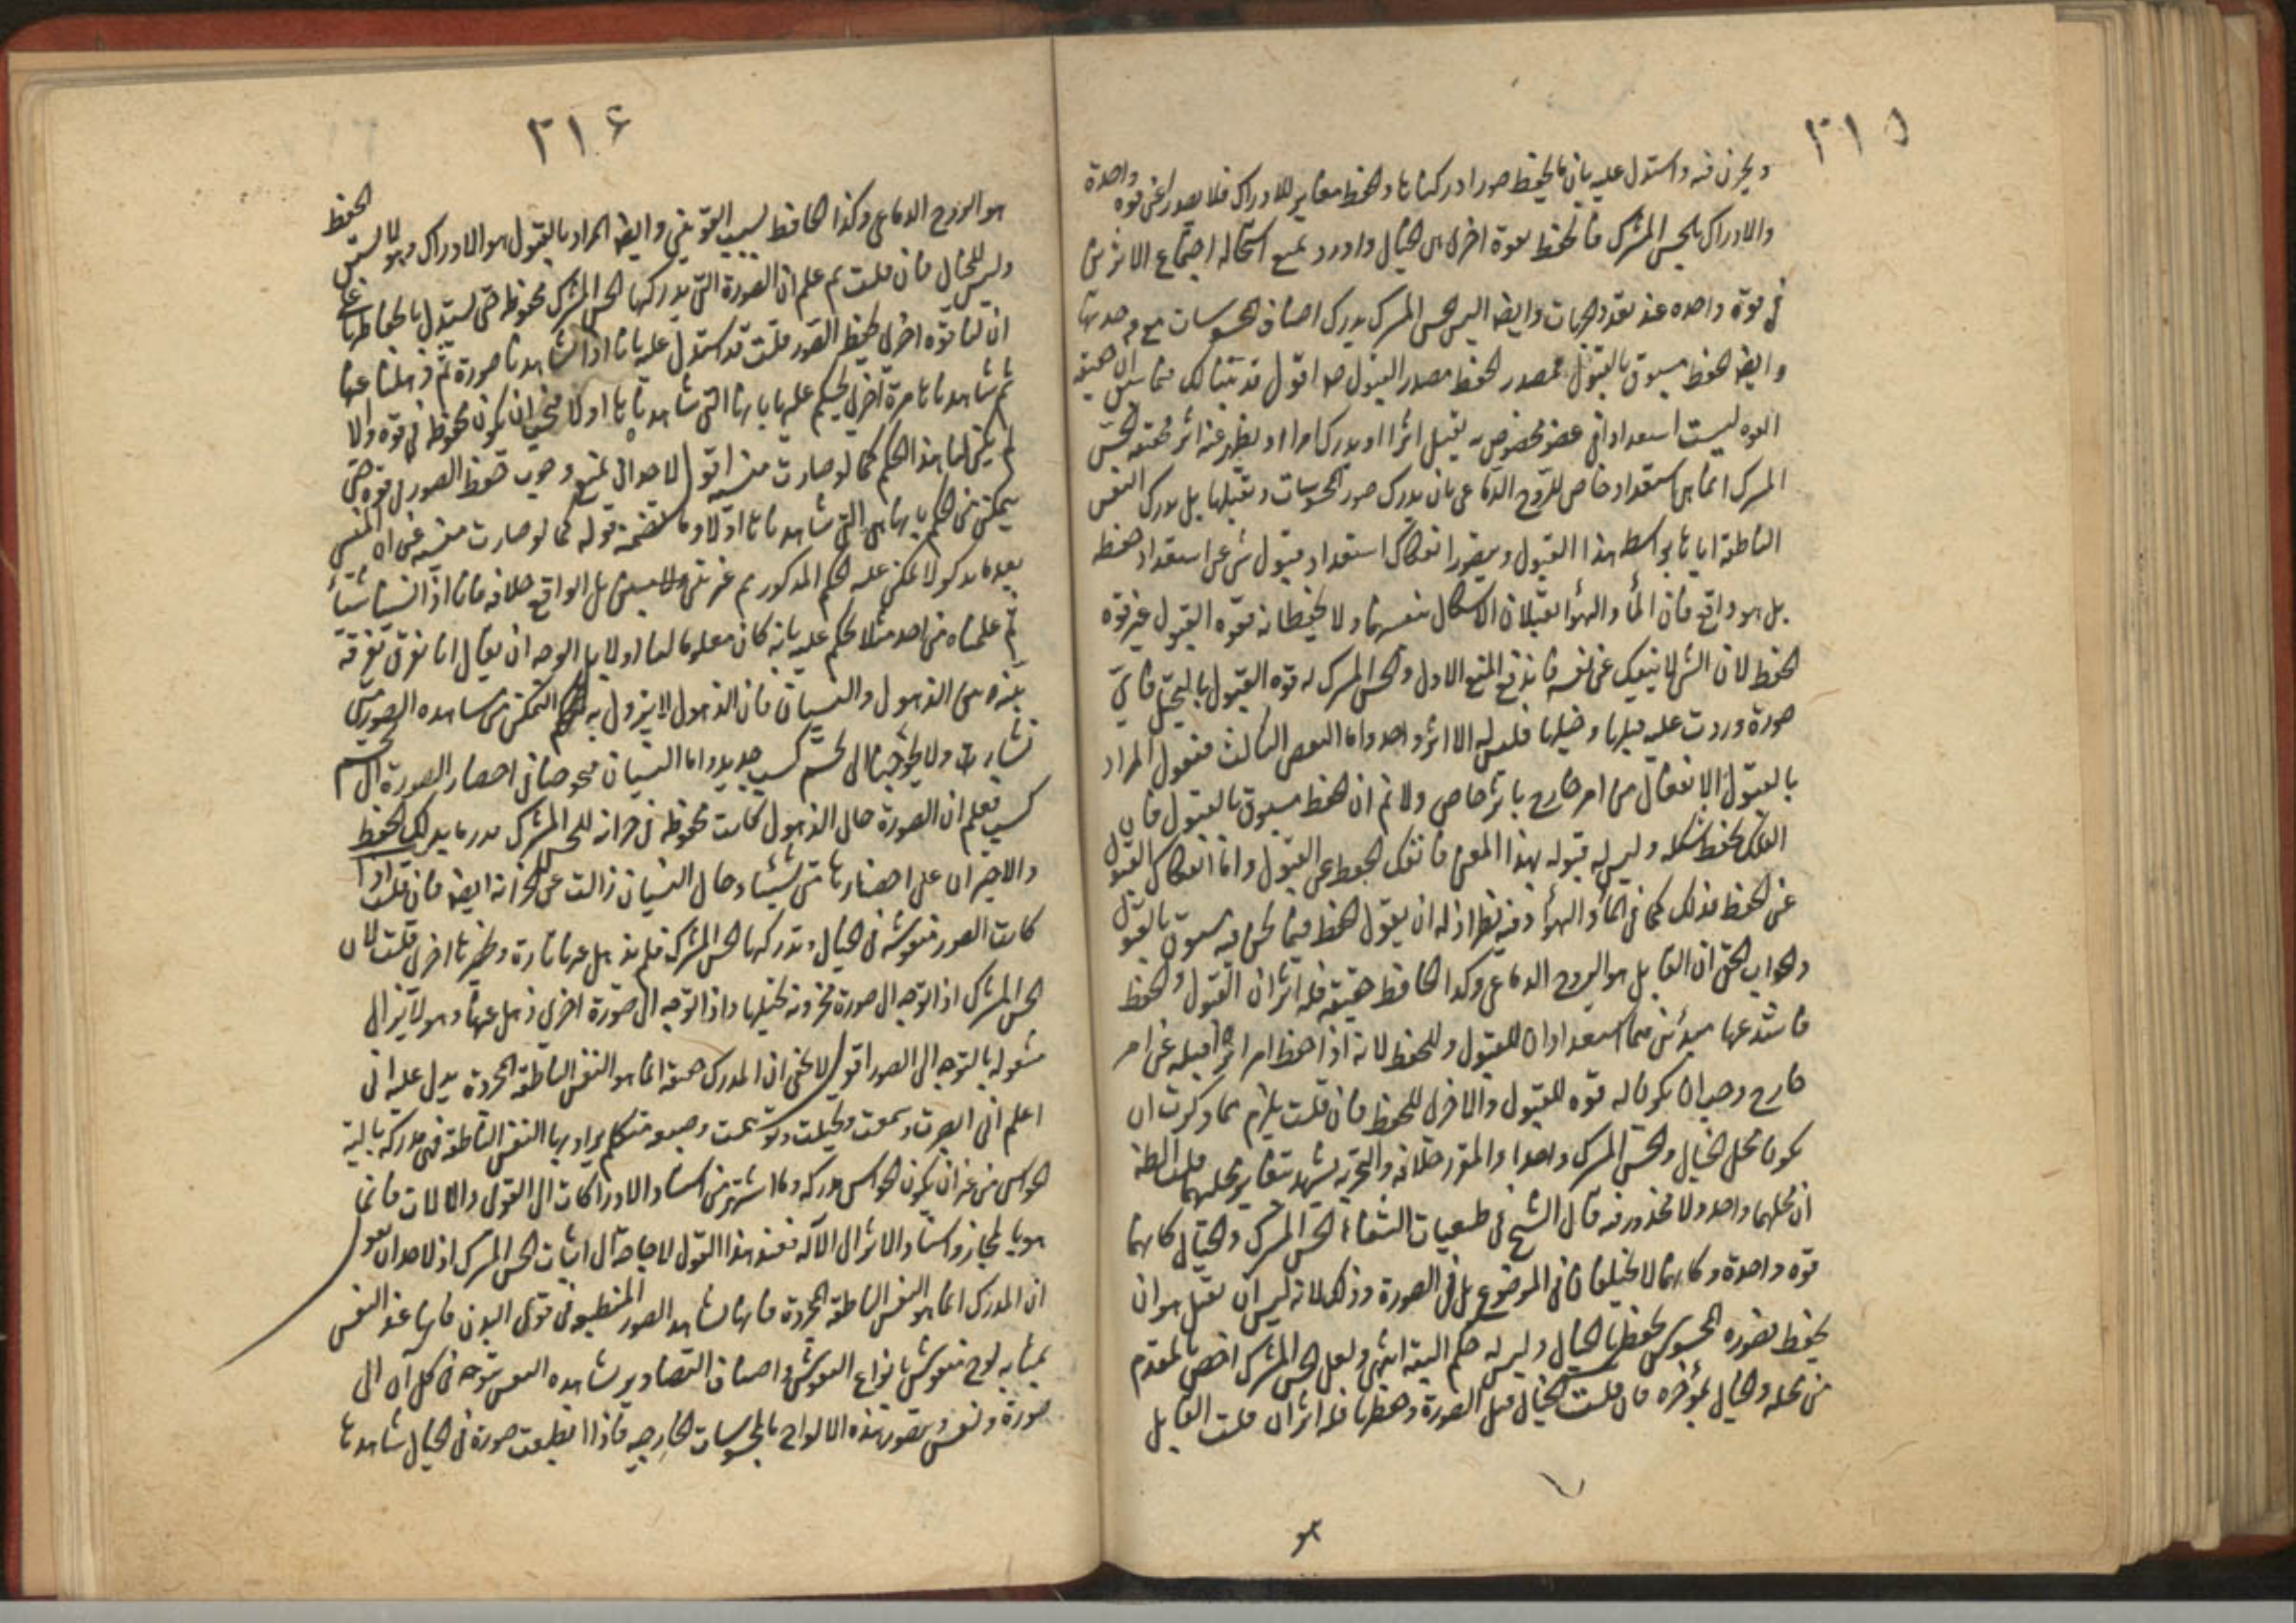 ٣١٥
ويخزن فيه واستدل عليه بان ما يحفظ صورا ادركناها والحفظ مغاير للادراك فلا يصدر عن قوة واحدة
والادراك بالحس المشترك فالحفظ بقوة اخرى هي الخيال واورد بمنع استحالة اجتماع الاثرين
في قوة واحدة عند تعدد الجهات وايضا اليس الحس المشترك يدرك اصناف المحسوسات مع وحدتها
وايضا الحفظ مسبوق بالقبول فمصدر الحفظ مصدر القبول اقول قد بينا لك فيما سبق ان حقيقة
القوة ليست استعدادا في عضو مخصوص به يقبل اثرا او يدرك امرا او يظهر عنه اثر فحقيقة الحس
المشترك انما هي استعداد خاص للروح الدماغي بان يدرك صور المحسوسات وتقبلها بل يدرك النفس
الناطقة اياها بواسطة هذا القبول ويتصور انفكاك استعداد قبول شيء عن استعداد حفظه
بل هو واقع فان الماء والهواء يقبلان الاشكال بنفسهما ولا يحفظانه فقوة القبول غير قوة
الحفظ لان الشيء لا ينفك عن نفسه فاندفع المنع الاول والحس المشترك له قوة القبول بالتخيل فاي
صورة وردت عليه قبلها وتخيلها فليس له الا اثر واحد واما النقض الثالث فنقول المراد
بالقبول الانفعال من امر خارج باثر خاص ولا نم ان الحفظ مسبوق بالقبول فان
الفلك يحفظ شكله وليس له قبوله بهذا المعنى فانفك الحفظ عن القبول واما انفكاك القبول
عن الحفظ فذلك كما في الماء والهواء وفيه نظر اذ له ان يقول الحفظ فيما نحن فيه مسبوق بالقبول
والجواب الحق ان القابل هو الروح الدماغي وكذا الحافظ حقيقة فله اثران القبول والحفظ
عنها مبدئين هما استعدادان للقبول وللحفظ لانه اذا حفظ امرا آخر قبله عن امر
خارج وجب ان يكون له قوة للقبول والاخرى للحفظ فان قلت يلزم مما ذكرت ان
يكون محل الخيال والحس المشترك واحدا والمقرر خلافه والتجربة يشهد بتغاير محلهما قلت الظ
ان محلهما واحد ولا محذور فيه قال الشيخ في طبيعيات الشفاء الحس المشترك والخيال كانهما
قوة واحدة وكانهما لا يختلفان في الموضوع بل في الصورة وذلك لانه ليس ان يقبل هو ان
يحفظ فصورة المحسوس يحفظها الخيال وليس له حكم البتة انتهى ولعل الحس المشترك اخص بالمقدم
من محله والخيال بمؤخره فان قلت الخيال قبل الصورة وحفظها فله اثران قلت القابل
٣١٦
هو الروح الدماغي وكذا الحافظ بسبب القوتين وايضا المراد بالقبول هو الادراك وهو لا يستلزم الحفظ
وليس للخيال فان قلت بم علم ان الصورة التي يدركها الحس المشترك محفوظة حتى يستدل بانحفاظها على
ان لنا قوة اخرى لحفظ الصور قلت قد استدل عليه بانا اذا شاهدنا صورة ثم ذهلنا عنها
ثم شاهدناها مرة اخرى نحكم عليها بانها التي شاهدناها اولا فيجب ان يكون محفوظة في قوة والا
لم يكن لنا هذا الحكم كما لو صارت منسية اقول لاحد ان يمنع وجوب حفظ الصور في قوة حتى
يمكن من الحكم بانها هي التي شاهدناها اولا وما يتضمنه قوله كما لو صارت منسية من ان المنسي
بعدما يذكر لا يمكن عليه الحكم المذكور غير بين ولا مبين بل الواقع خلافه فانا اذا نسينا شيئا
ثم علمناه من احد مثلا نحكم عليه بانه كان معلوما لنا اولا بل الوجه ان يقال انا نفرق تفرقة
بينة بين الذهول والنسيان فان الذهول لا يزول به التمكن من مشاهدة الصور متى
نشاء ولا يحوجنا الى تجشم كسب جديد واما النسيان فيحوجنا في احضار الصورة الى تجشم
كسب فعلم ان الصورة حال الذهول كانت محفوظة في خزانة للحس المشترك
والاخيران على احضارها متى شئنا وحال النسيان زالت عن الخزانة ايضا فان قلت اذا
كانت الصور منقوشة في الخيال وتدركها الحس المشترك فلم نذهل عنها تارة ونخطرها اخرى قلت لان
الحس المشترك اذا توجه الى صورة مخزونة تخيلها واذا توجه الى صورة اخرى ذهل عنها وهو لا يزال
مشغولا بالتوجه الى الصور اقول لا يخفى ان المدرك حقيقة انما هو النفس الناطقة المجردة يدل عليه اني
اعلم اني ابصرت وسمعت وتخيلت وتوهمت وصيغة متكلم يراد بها النفس الناطقة فهي مدركة بالية
الحواس من غير ان يكون الحواس مدركة وما اشتهر من اسناد الادراكات الى القوى والالات فانما
هو بالمجاز واسناد الاثر الى الالة فعند هذا القول لا حاجة الى اثبات الحس المشترك اذ لاحد ان يقول
ان المدرك انما هو النفس الناطقة المجردة فانها تشاهد الصور المنطبعة في قوى البدن فانها عند النفس
بمثابة لوح منقوش بانواع النقوش واصناف التصاوير تشاهده النفس بتوجه في كل آن الى
صورة ونقش وتصور هذه الالواح بالمحسوسات الخارجية فاذا انطبعت صورة في الخيال شاهدها